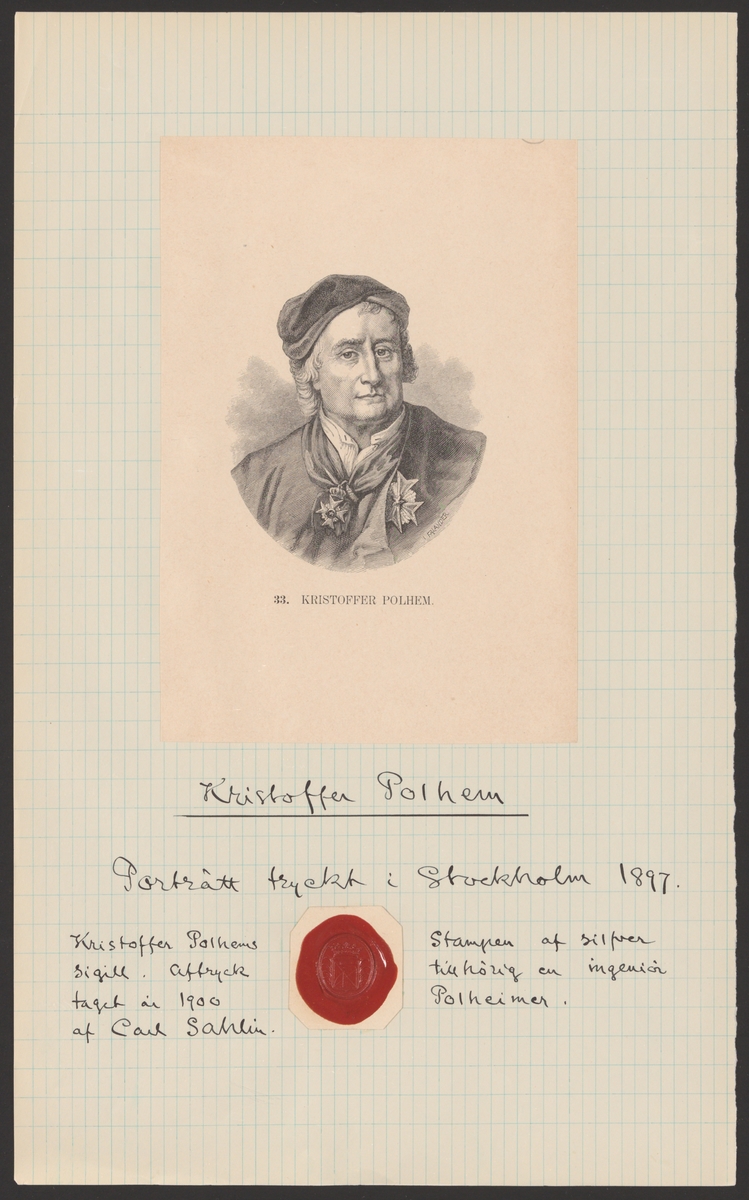 33. KRISTOFFER POLHEM.
Kristoffer Polhem
Porträtt tryckt i Stockholm 1897.
Kristoffer Polhems
sigill. Aftryck
taget år 1900
af Carl Sahlin.
Stampen af silfver
tillhörig en ingeniör
Polheimer.